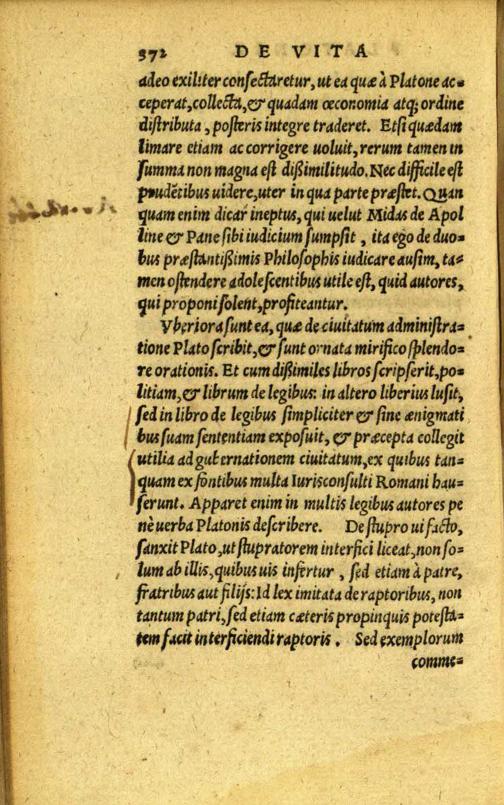 372 DE VITA
adeo exiliter consectaretur, ut ea quæ à Platone ac=
ceperat, collecta, & quadam œconomia atq; ordine
distributa, posteris integre traderet. Etsi quædam
limare etiam ac corrigere uoluit, rerum tamen in
summa non magna est dißimilitudo. Nec difficile est
prudẽtibus uidere, uter in qua parte præstet. Quan
quam enim dicar ineptus, qui uelut Midas de Apol
line & Pane sibi iudicium sumpsit, ita ego de duo=
bus præstantißimis Philosophis iudicare ausim, ta=
men ostendere adolescentibus utile est, quid autores,
qui proponi solent, profiteantur.
Vberiora sunt ea, quæ de ciuitatum administra=
tione Plato scribit, & sunt ornata mirifico splendo=
re orationis. Et cum dißimiles libros scripserit, po=
litiam, & librum de legibus: in altero liberius lusit,
sed in libro de legibus simpliciter & sine ænigmati
bus suam sententiam exposuit, & præcepta collegit
utilia ad gubernationem ciuitatum, ex quibus tan=
quam ex fõntibus multa Iurisconsulti Romani hau=
serunt. Apparet enim in multis legibus autores pe
nè uerba Platonis describere. De stupro ui facto,
sanxit Plato, ut stupratorem interfici liceat, non so=
lum ab illis, quibus uis infertur, sed etiam à patre,
fratribus aut filijs: Id lex imitata de raptoribus, non
tantum patri, sed etiam cæteris propinquis potesta=
tem facit interficiendi raptoris. Sed exemplorum
comme=